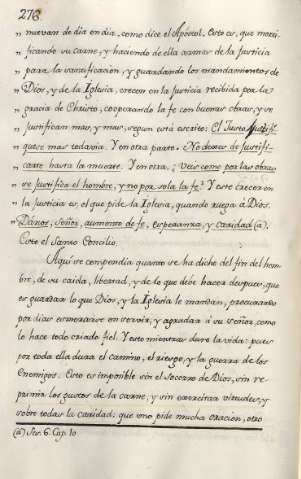 278
„ nuevan de dia en dia, como dice el Apóstol. Esto es, que morti-
„ ficando su carne, y haciendo de ella armas de la Justicia
„ para la santificacion, y guardando los mandamientos de
„ Dios, y de la Iglesia, crecen en la Justicia recibida por la
„ gracia de Christo, cooperando la fe con buenas obras, y se
„ justifican mas, y mas, segun está escrito: El Justo justifi-
„ quese mas todavia. Y en otra parte. No dexes de justifi-
„ carte hasta la muerte. Y en otra: Veis como por las obras
„ se justifica el hombre, y no por sola la fe? Y este crecer en
„ la justicia es, el que pide la Iglesia, quando ruega á Dios.
„ Dános, Señor, aumento de fe, esperanza, y caridad (a).
Este el Santo Concilio.
Aquí se compendía quanto se ha dicho del fin del hom-
bre, de su caida, libertad, y de lo que debe hacer despues, que
es guardar lo que Dios, y la Iglesia le mandan, procurando
por dias esmerarse en servir, y agradar á su Señor, como
lo hace todo criado fiel. Y esto mientras dure la vida: pues
por toda ella duran el camino, el riesgo, y la guerra de los
Enemigos. Esto es imposible sin el socorro de Dios, sin re-
primir los gustos de la carne; y sin exercitar virtudes, y
sobre todas la caridad: que uno pide mucha oracion, otro
(a) Ses. 6. Cap. 10